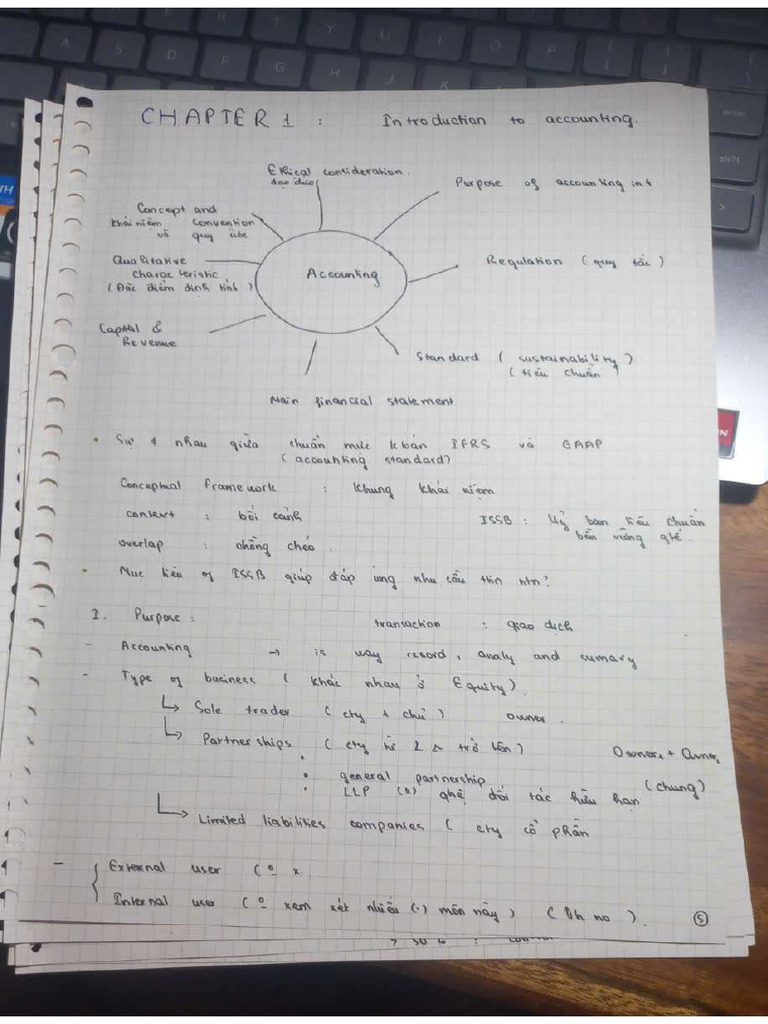 CHAPTER 1 : Introduction to accounting.
Ethical consideration.
đạo đức
Purpose of accounting int
Concept and
khái niệm convention
và quy ước
Qualitative
characteristic
( Đặc điểm định tính )
Accounting
Regulation ( quy tắc )
Capital &
Revenue
Standard ( sustainability )
( tiêu chuẩn
Main financial statement
• Sự ≠ nhau giữa chuẩn mực k toán IFRS và GAAP
( accounting standard)
Conceptual framework : khung khái niệm
context : bối cảnh
ISSB : Uỷ ban tiêu chuẩn
bền vững qtế.
overlap : chồng chéo.
• Mục tiêu of ISSB giúp đáp ứng nhu cầu ttin ntn?
I. Purpose :
transaction : giao dịch
- Accounting → is way record, analy and sumary
- Type of business ( khác nhau ở Equity ).
↳ Sole trader ( cty 1 chủ ) owner.
↳ Partnerships ( cty từ 2 trở lên ) Owner₁ + Owner₂
• general partnership (chung)
• LLP đối tác hữu hạn
↳ Limited liabilities companies ( cty cổ phần
- External user
Internal user xem xét nhiều (.) môn này )
5